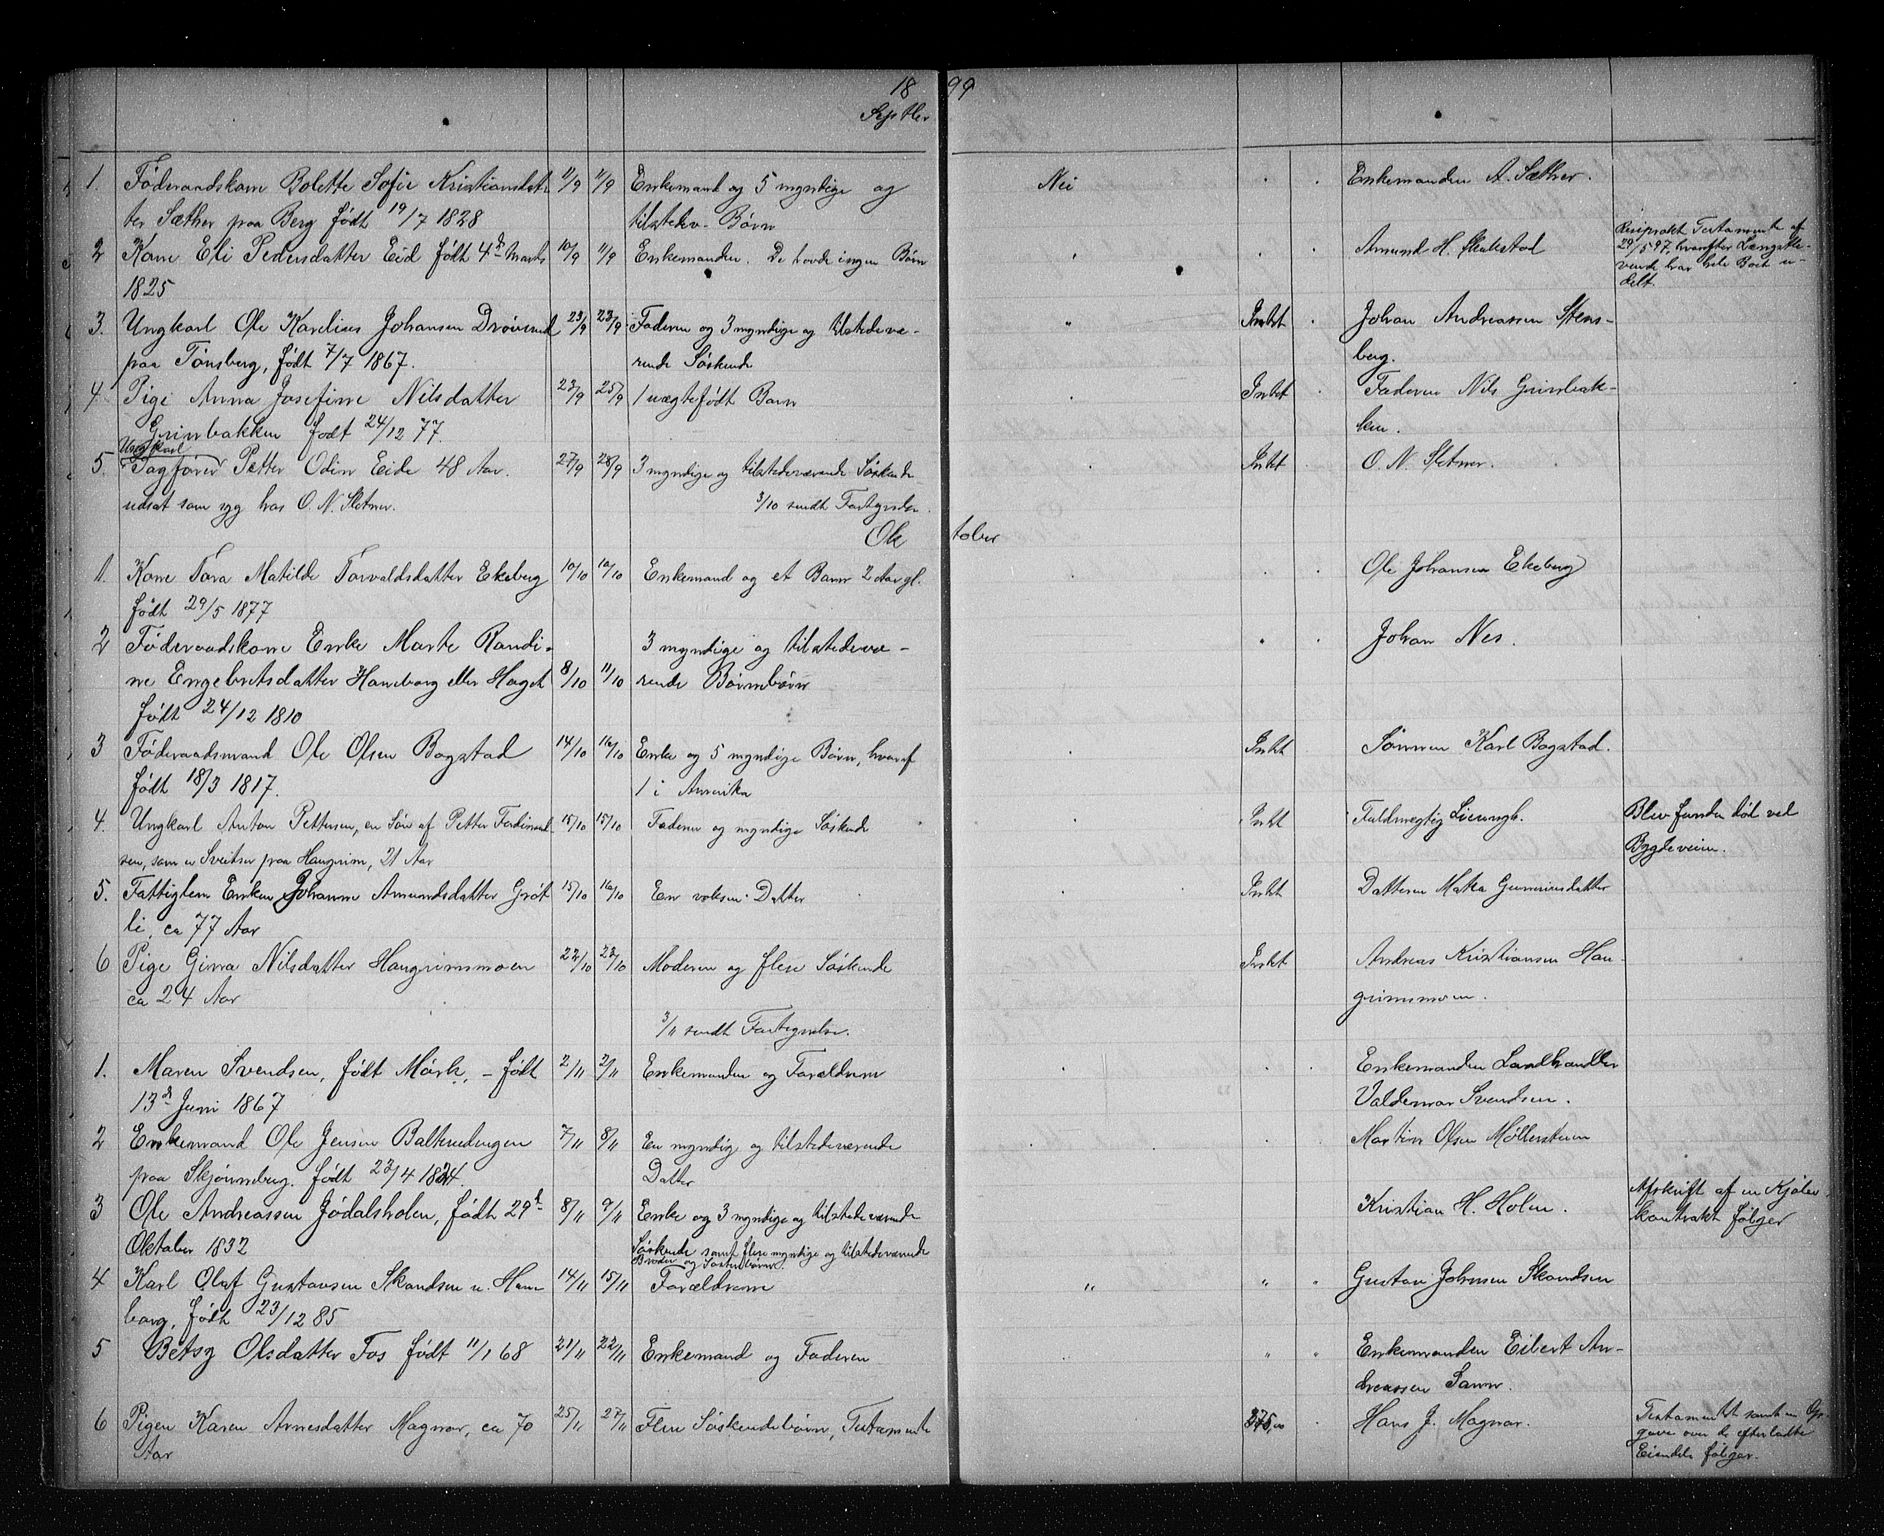 1899
Septbr
1. Føderaadskone Bolette Sofie Kristiansdat- 11/9 11/9 Enkemand og 5 myndige og Nei Enkemanden A. Sæther.
ter Sæther paa Berg født 19/7 1828 tilstedev. Børn
2 Kone Eli Pedersdatter Eid født 4d Marts 10/9 11/9 Enkemanden. De havde ingen Børn Amund H. Skatestad Resiprokt Testamente af
1825 29/5 97, hvorefter Længstle-
vende har hele Boet u-
delt.
3. Ungkarl Ole Karelius Johansen 23/9 23/9 Faderen og 3 myndige og tilstedevæ- Intet Johan Andreassen Stens-
paa Tønsberg, født 7/7 1867. rende Søskende berg.
4. Pige Anna Josefine Nilsdatter 23/9 25/9 1 uægtefødt Barn Intet Faderen Nils Grinbak-
Grinbakken født 24/12 77. ken.
Ungkarl
5. Togfører Petter Odin Eide 48 Aar. 27/9 28/9 3 myndige og tilstedeværende Søskende Intet O. N. Sletner.
udsat som syg hos O. N. Sletner. 3/10 sendt Fortegnelse.
Oktober
1. Kone Tora Matilde Torvaldsdatter Ekeberg 10/10 10/10 Enkemand og et Barn 2 Aar gl. Ole Johansen Ekeberg
født 29/5 1877
2 Føderaadskone Enke Marte Randi- 3 myndige og tilstedevæ- Johan Nes.
ne Engebretsdatter Haneborg eller Haget 8/10 11/10 rende Børnebørn
født 24/12 1810
3 Føderaadsmand Ole Olsen Bogstad 14/10 16/10 Enke og 5 myndige Børn, hvoraf Intet Sønnen Karl Bogstad.
født 18/3 1817. 1 i Amerika
4. Ungkarl Anton Pettersen, en Søn af Petter Ferdinand- 15/10 15/10 Faderen og myndige Søskende Intet Fuldmægtig Blev funden død ved
sen, som er Sveitser paa Haugrim, 21 Aar Bygdeveien.
5. Fattiglem Enken Johanne Amundsdatter Grøt- 15/10 16/10 En voksen Datter Intet Datteren Matea Guneriusdatter
li, ca 77 Aar
6 Pige Gina Nilsdatter Haugrimsmoen 22/10 23/10 Moderen og flere Søskende Intet Andreas Kristiansen Hau-
ca 24 Aar grimsmoen.
3/11 sendt Fortegnelse.
1. Maren Svendsen, født Mørk, - født 2/11 2/11 Enkemanden og Forældrene Enkemanden Landhandler
13d Juni 1867 Valdemar Svendsen.
2 Enkemand Ole Jensen Balterudengen 7/11 8/11 En myndig og tilstedeværende Martin Olsen Møllersteen
paa Skjønneberg. født 23/4 1824. Datter
3 Ole Andreassen Jødalsholen, født 29d 8/11 9/11 Enke og 3 myndige og tilstedeværende Kristian H. Holen. Afskrift af en Kjøbe-
Oktober 1832 Søskende samt flere myndige og tilstedeværende kontrakt følger
Broder og Søsterbørn.
4 Karl Olaf Gustavsen Skandsen u. Hane- 14/11 15/11 Forældrene " " " Gustav Johnsen Skandsen
borg, født 23/12 85
5 Betsy Olsdatter Fos født 11/1 68 21/11 22/11 Enkemand og Faderen " " Enkemanden Eibert An-
dreassen Sann.
6 Pigen Karen Arnesdatter Magnor, ca 70 25/11 27/11 Flere Søskendebørn, Testamente 375,00 Hans J. Magnor. Testamentet samt en Op-
Aar gave over de efterladte
Eiendele følger.